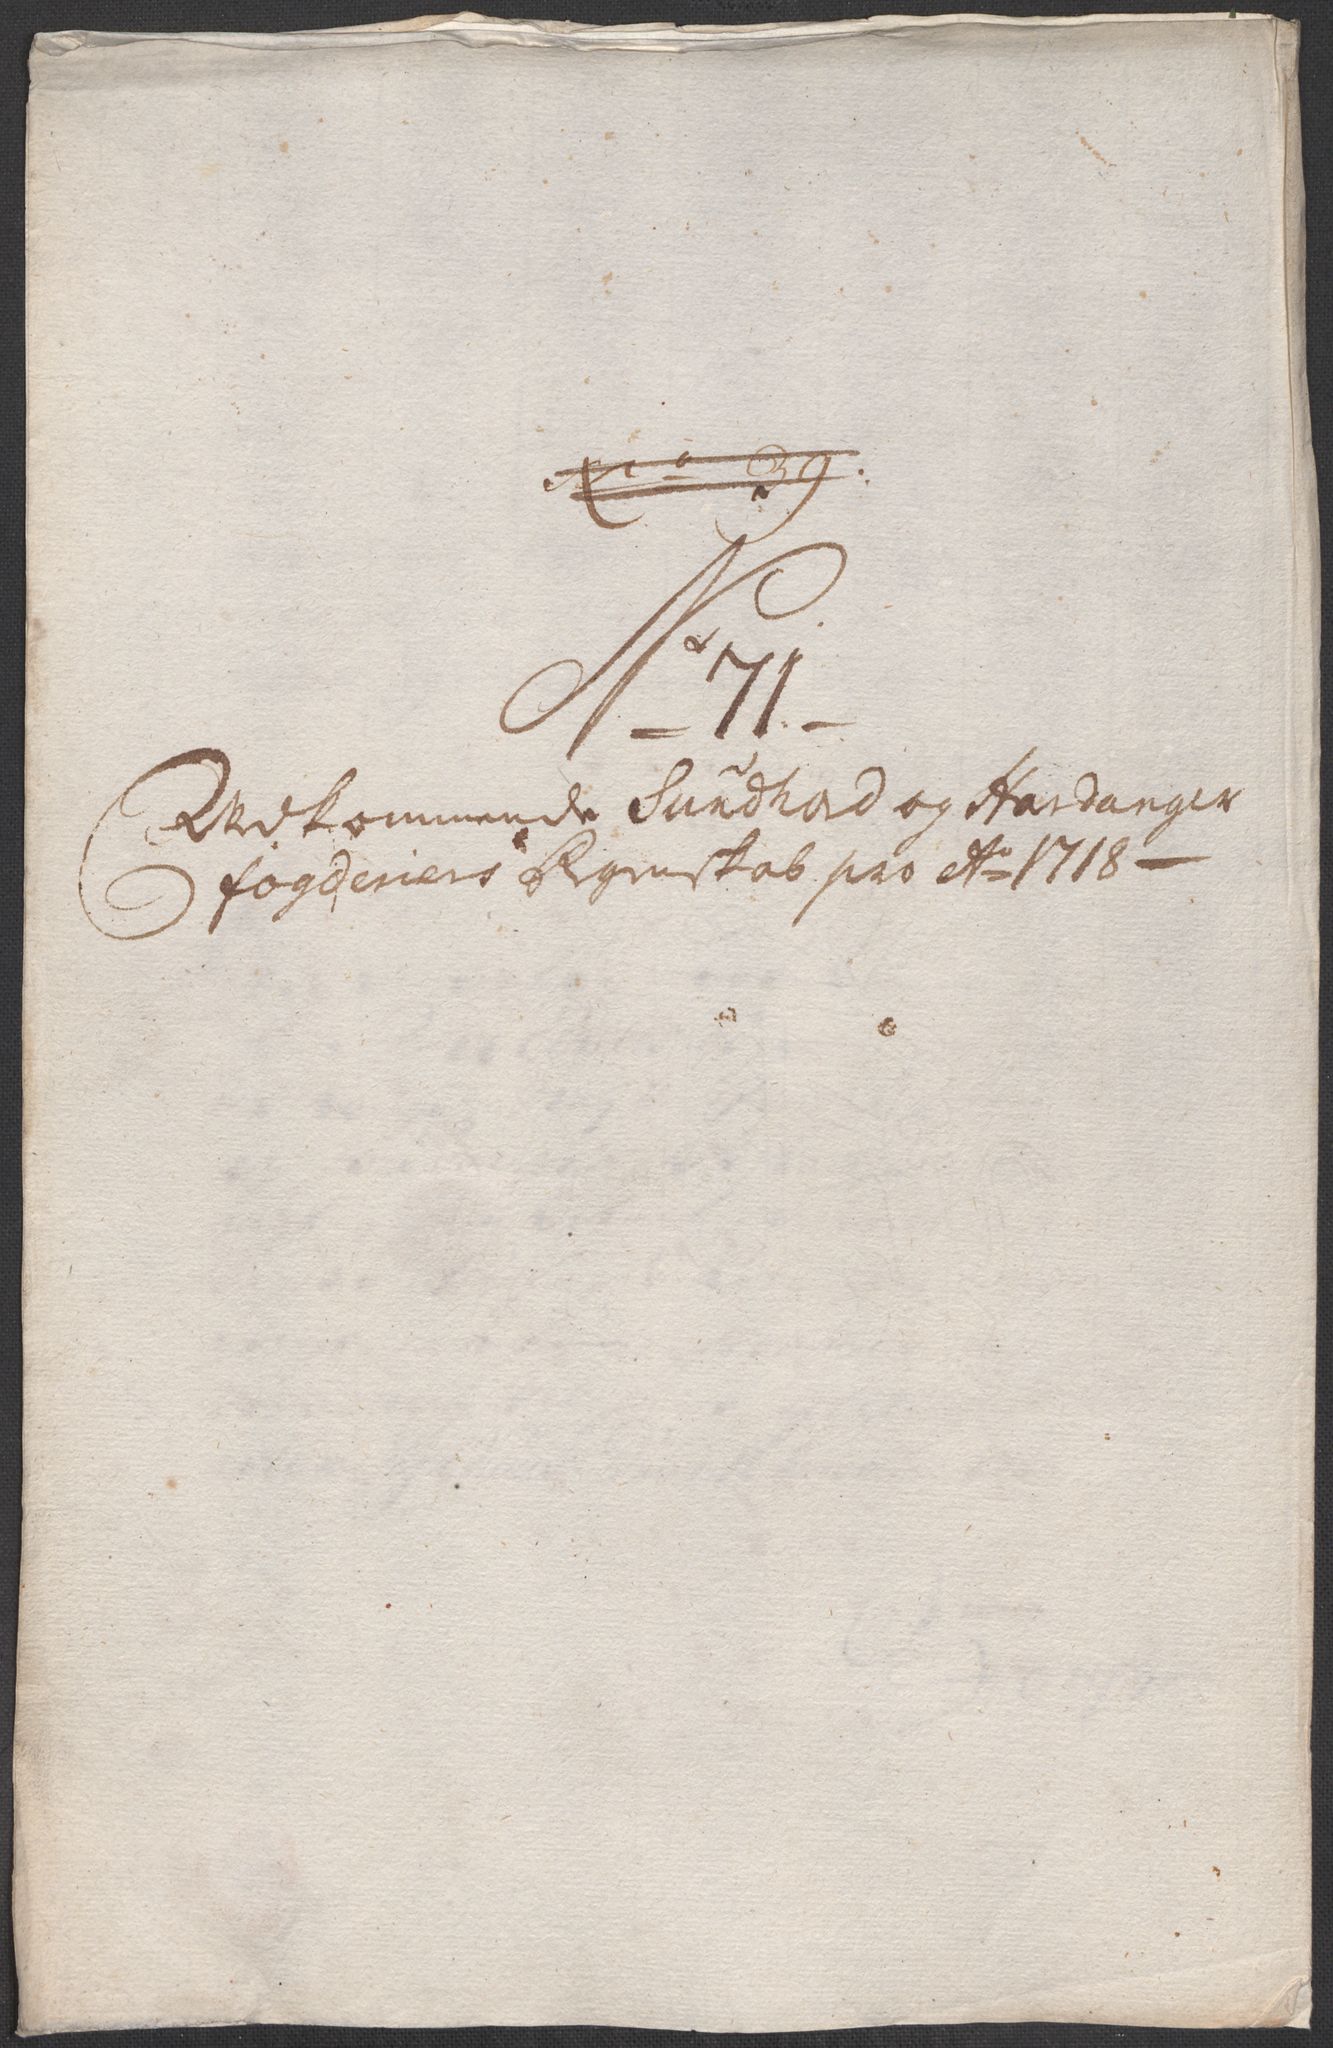 No 39.
No 71.
Vedkommende Sundhord og Hardanger
fogderiers Regenskab pro Ao 1718